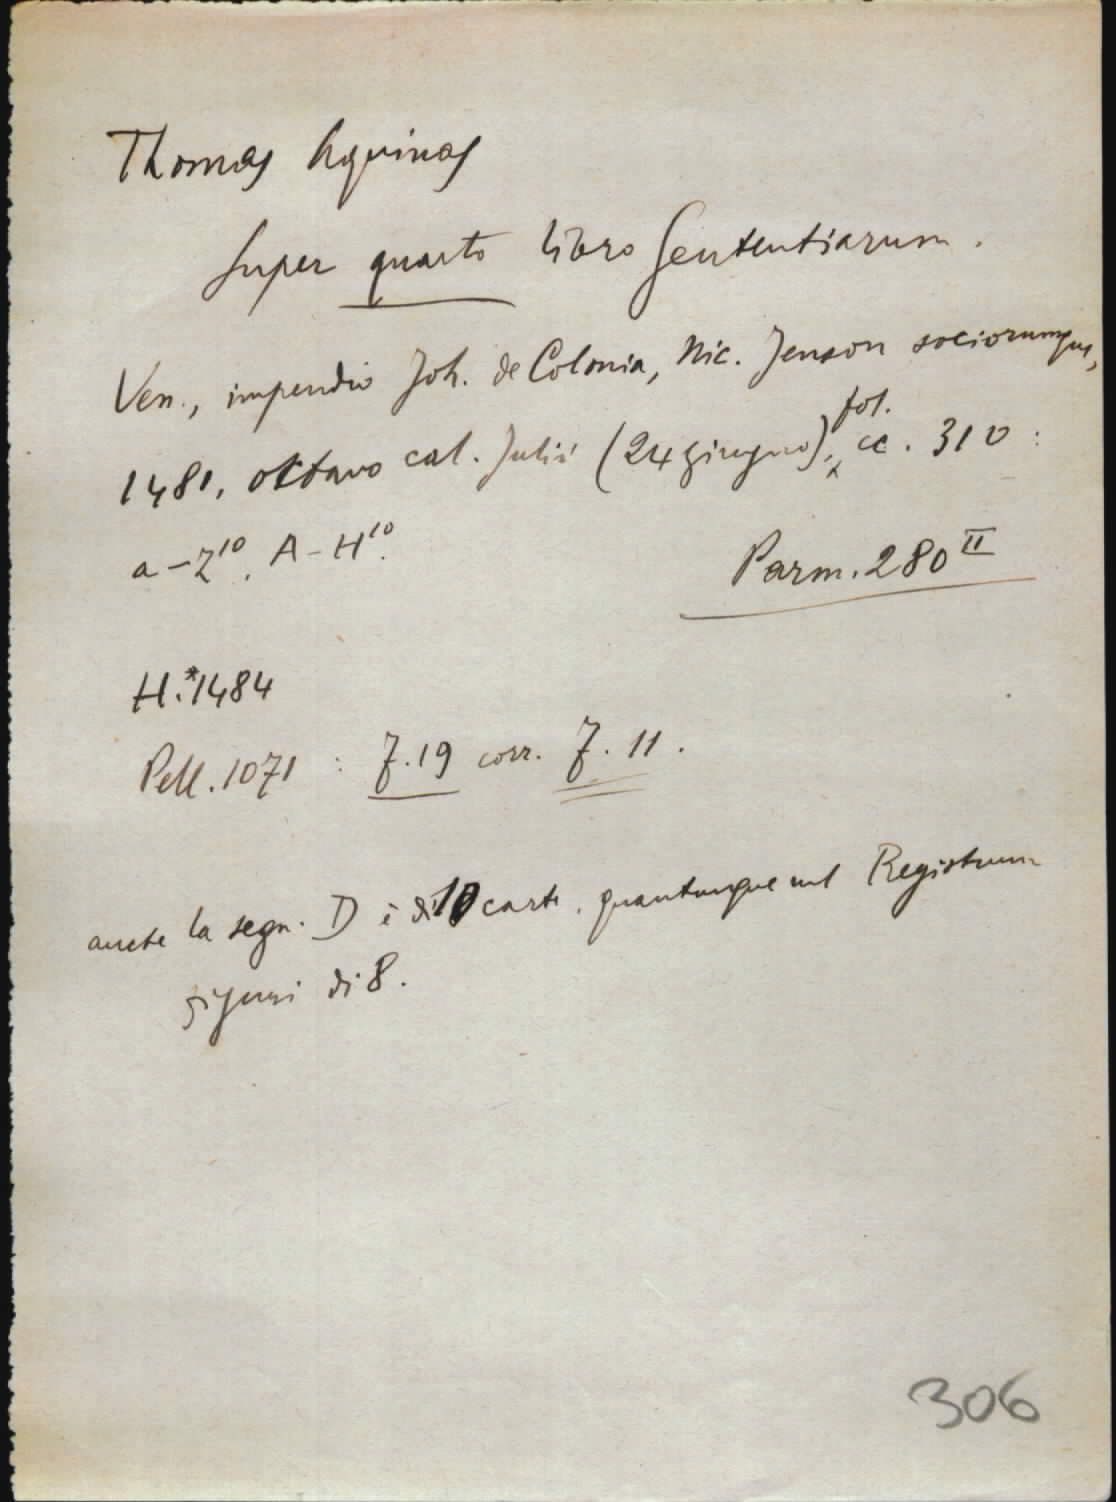 Thomas Aquinas
Super quarto libro Sententiarum.
Ven., impendio Joh. de Colonia, Nic. Jenson sociorumque,
1481, octavo cal. Julii (24 giugno), fol. cc. 310:
a-z¹⁰. A-H¹⁰.
Parm. 280 II
H.*1484
Pell. 1071 : f. 19 corr. f. 11.
anche la segn. D è di 10 carte, quantunque nel Registrum
figuri di 8.
306